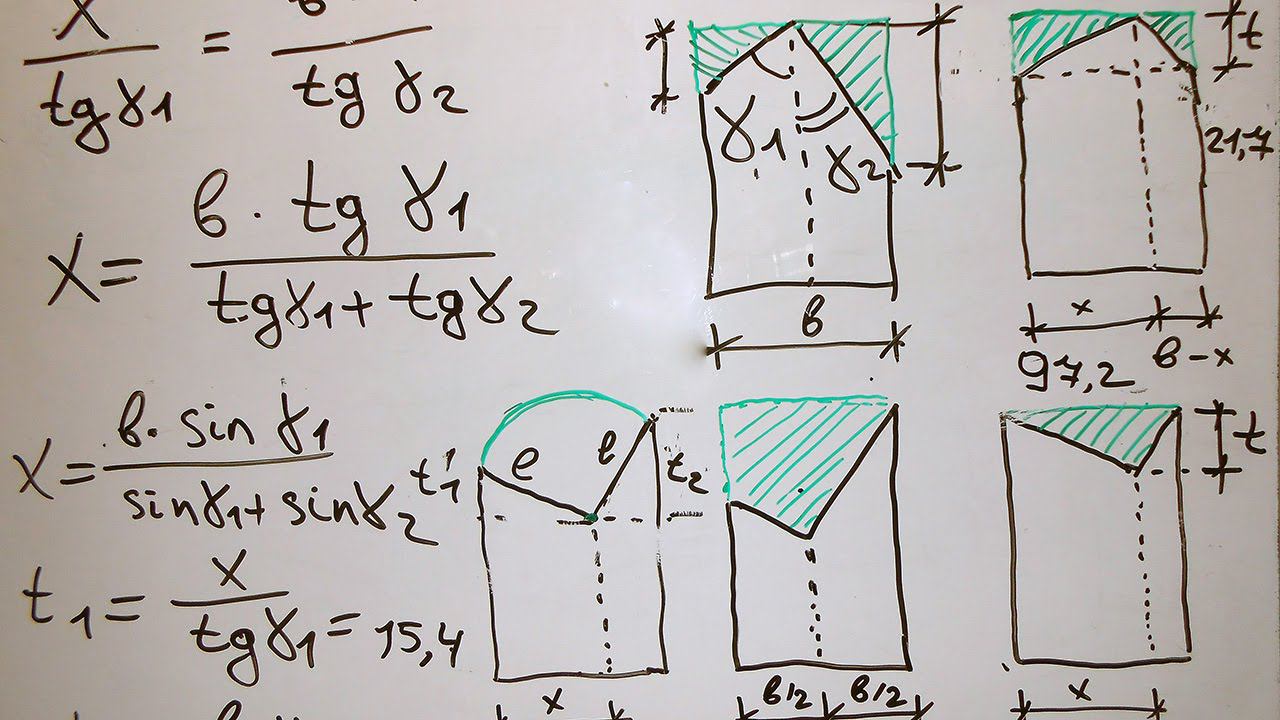 x / tg γ1 = / tg γ2
x = в · tg γ1 / tgγ1 + tgγ2
x = в · sin γ1 / sinγ1 + sinγ2
t1 = x / tgγ1 = 15,4
γ1
γ2
в
t
21,7
x
в-x
97,2
t1'
e
t2
x
в/2
в/2
t
x